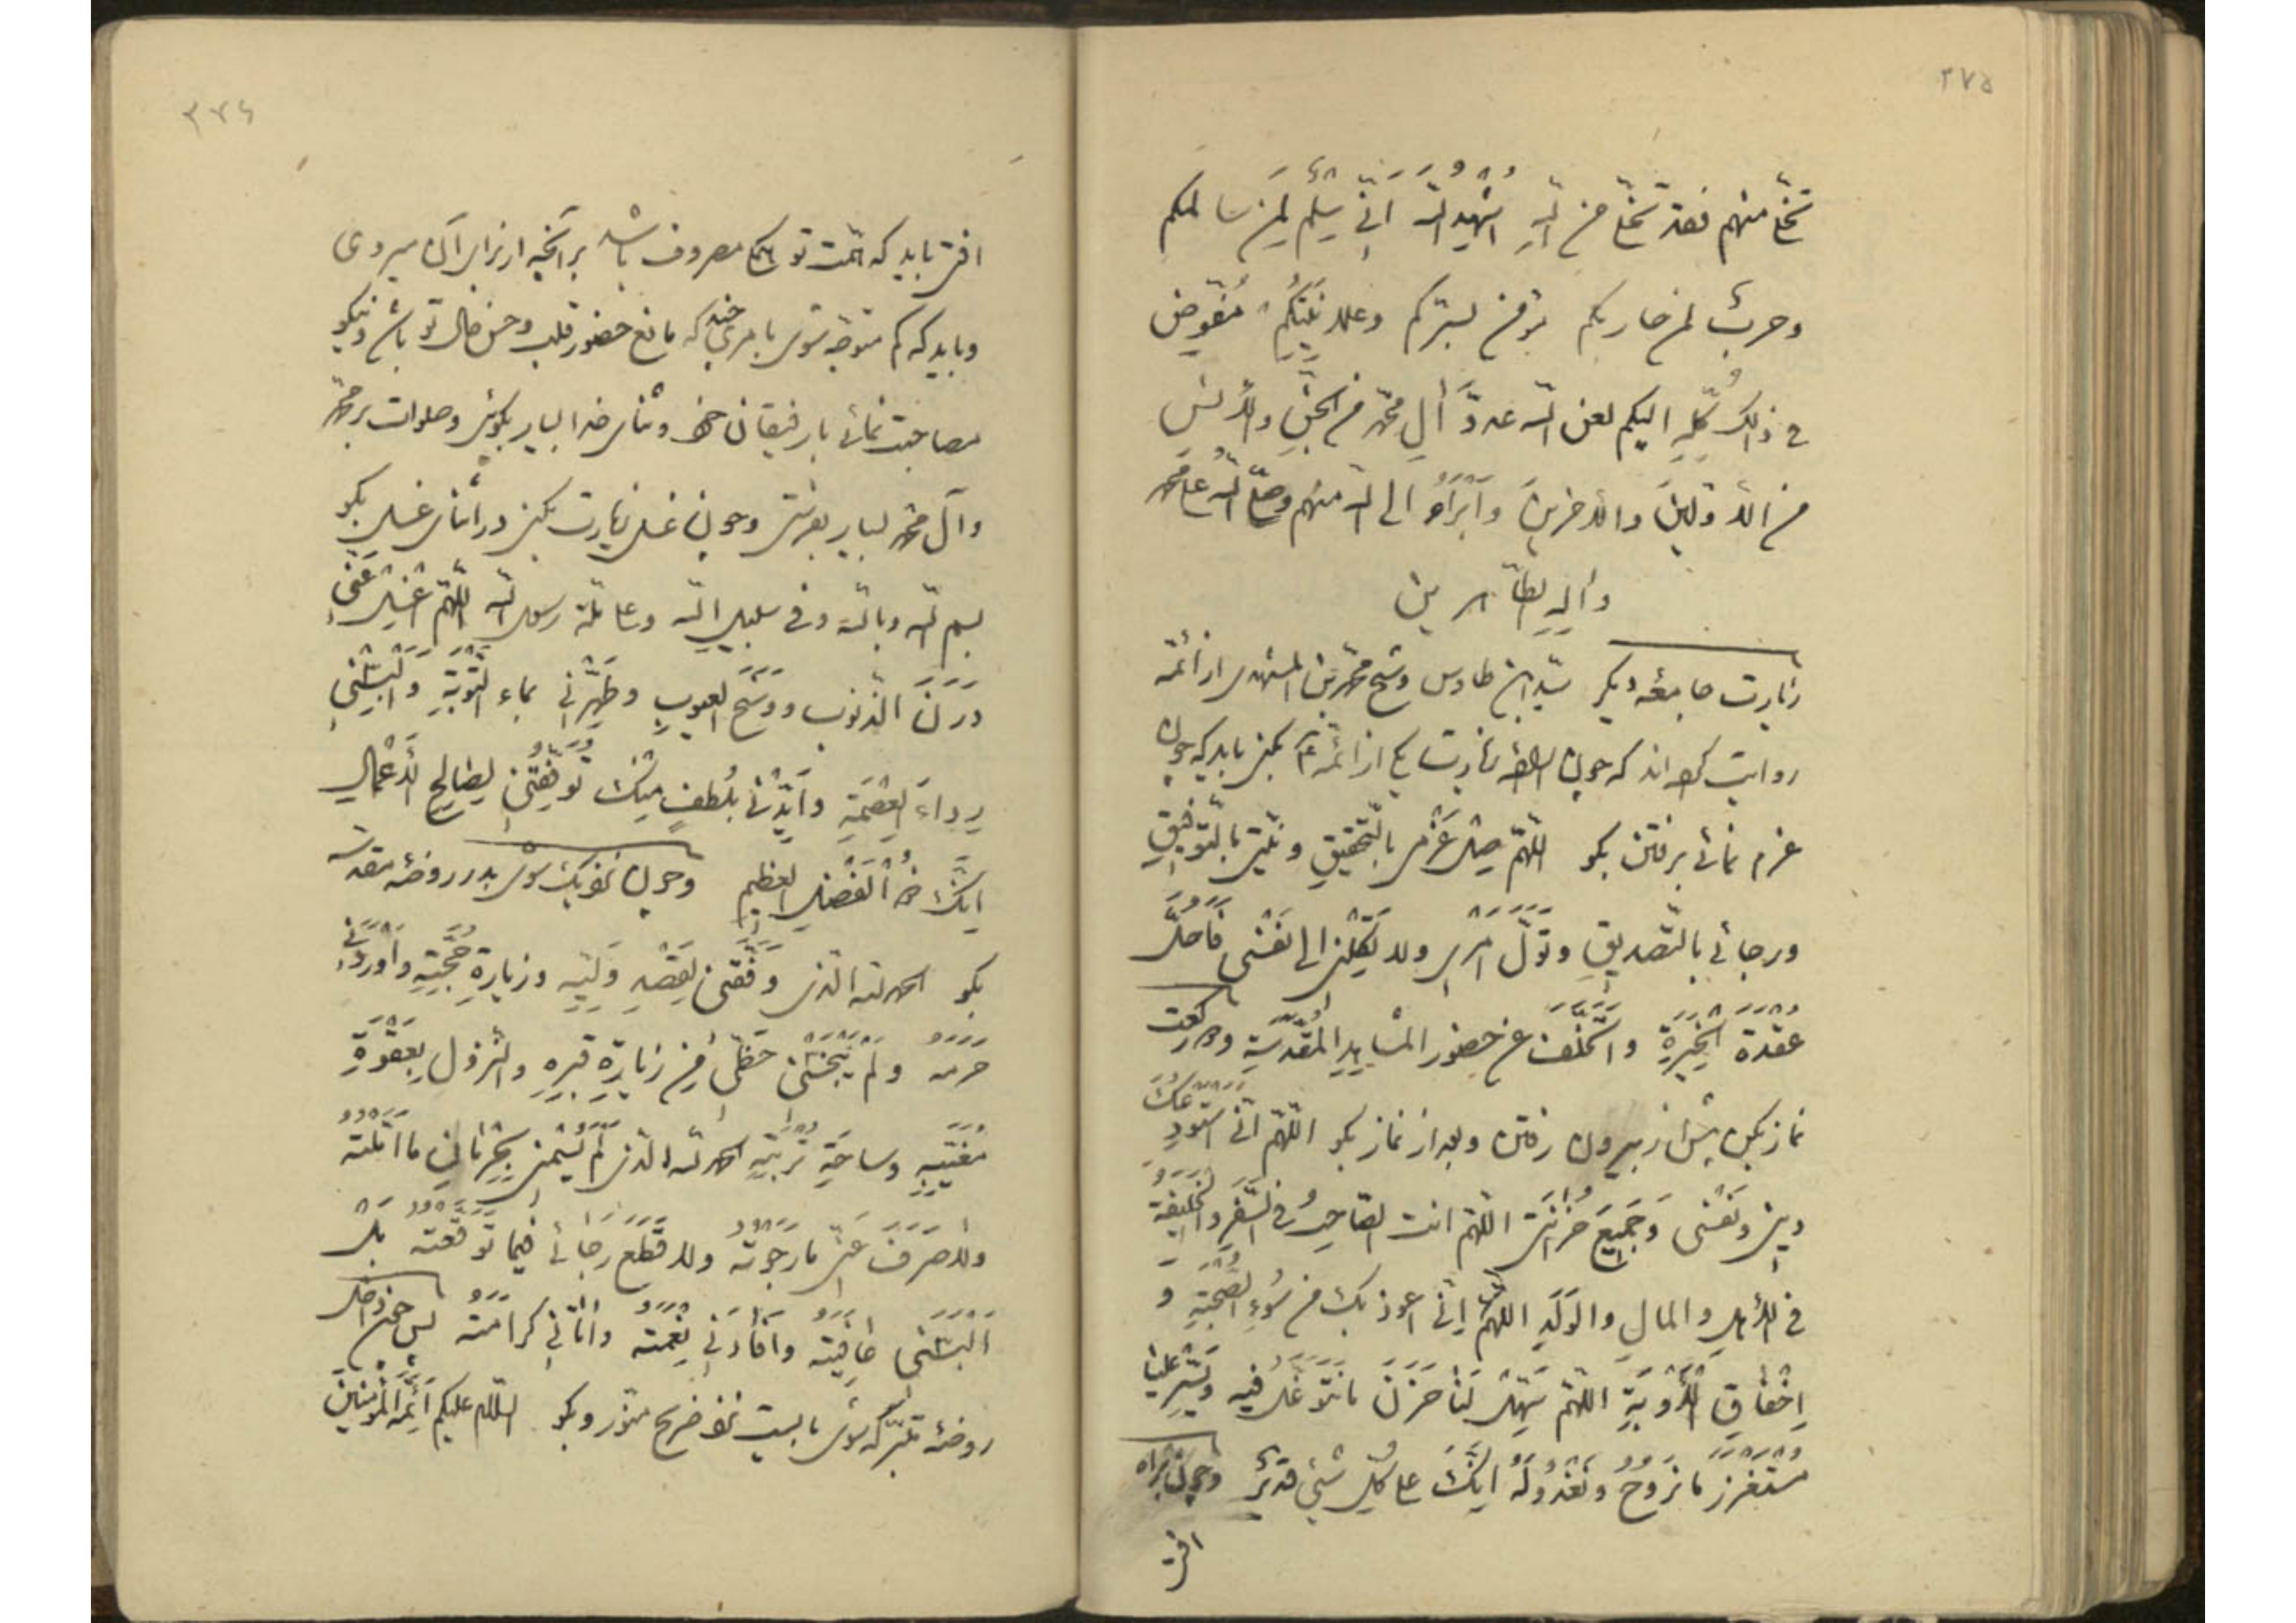 ۲۷۵
تخلّی منهم فقد تخلّی من الله اُشهِدُ الله اَنّی سِلمٌ لِمَن سالمکم
وحربٌ لمن حاربکم مؤمن بسرّکم وعلانیَتِکُم مُفَوِّض
فی ذالک کُلِّهِ الیکم لعن الله عدوَّ آلِ محمّد من الجنّ والأنس
من الأوّلینَ والأخرینَ واَبرَاُ الی الله منهم وصلّی اللهُ علی محمّد
وآلِهِ الطّاهرین
زیارت جامعه دیکر سیّد ابن طاوس وشیخ محمّد بن المشهدی از ائمّه
روایت کرده اند که چون اراده زیارت یکی از ائمّه ع بکنی باید که چون
عزم نمائی برفتن بکو اللّهمّ صِل عَزْمی بالتّحقیقِ ونیّتی بالتّوفیقِ
ورجائی بالتّصدیقِ وتوَلَّ اَمْری ولا تَکِلْنی الی نفسْی فَاَحُلَّ
عُقْدَةَ الخِیَرَةِ واَتَخَلَّفَ عن حضورِ المشاهِدِ المُقَدَّسَةِ ودو رکعت
نماز بکن پیش از بیرون رفتن وبعد از نماز بکو اللّهمّ انّی استودِعُکَ
دینی ونَفْسی وَجَمیعَ حُزانَتی اللّهمّ انت الصّاحِبُ فی السَّفَرِ والْخَلیفَةُ
فی الأهلِ والمالِ والوَلَدِ اللّهمّ اِنّی اعوذ بکَ من سُوءِ الصُّحْبَةِ و
اِخْفاقِ الْأَوْبَةِ اللّهمّ سَهِّلْ لَنا حَزَنَ ما نَتَوَغَّلُ فیهِ ویَسِّرْ علینا
مُسْتَغْزَرَ ما نَرُوحُ ونَغْدُو لَهُ اِنَّکَ علی کُلّ شَیْ قدیرٌ وچون براه
افتی
۲۷۶
افتی باید که همّت تو همکی مصروف باشد برآنچه از برای آن میروی
وباید که کم متوجّه شوی بامری چند که مانع حضور قلب وحسن حال تو باشد ونیکو
مصاحبت نمائی بارفیقان خود وثنای خدا بسیار بکوئی وصلوات بر محمّد
وآل محمّد بسیار بفرستی وچون غسل زیارت بکنی در اثنای غسل بکو
بسم الله وبالله وفی سبیل الله وعلی ملّة رسول الله اللّهمّ اغْسِلْ عَنّی
دَرَنَ الذّنوبِ ووَسَخَ العیوبِ وطَهِّرْنی بماءِ التَّوْبَةِ والْبِسْنی
رِداءَ العِصْمَةِ واَیِّدْنی بلُطْفٍ مِنْکَ تُوَفِّقُنی لِصالِحِ الأعْمالِ
اِنَّکَ ذو الْفَضْلِ العظیمِ وچون نزدیک شوی بدر روضه مقدسه
بکو الحمد لله الّذی وَفَّقَنی لِقَصْدِ وَلیِّهِ وزیارةِ حُجَّتِهِ واَوْرَدَنی
حَرَمَهُ ولَم یَبْخَسْنی حَظّی مِن زیارةِ قبرِهِ والنّزولِ بِعَقْوَةِ
مُغَیَّبِهِ وساحَةِ تُرْبَتِهِ الحمد لله الّذی لَم یَسِمْنی بِحِرْمانِ ما اَمَّلْتُهُ
ولا صَرَفَ عَنّی ما رَجَوْتُهُ ولا قَطَعَ رَجائی فیما تَوَقَّعْتُهُ بَلْ
اَلْبَسَنی عافِیَتَهُ واَفادَنی نِعْمَتَهُ واٰتانی کرامَتَهُ پس چون داخل
روضه متبرّکه شوی بایست نزد ضریح منوّر وبکو السّلام علیکم اَئِمَّةَ المؤمنینَ